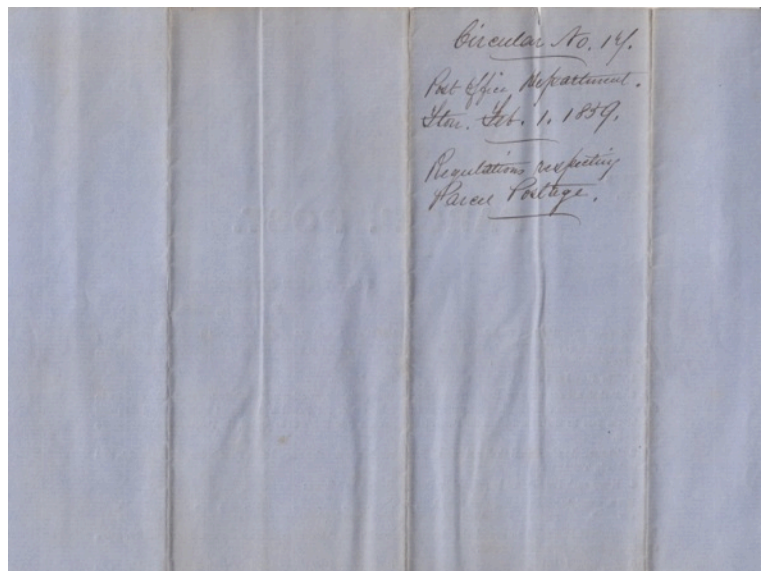 Circular No. 14.
Post Office Department.
Feb. 1. 1859.
Regulations respecting
Parcel Postage.